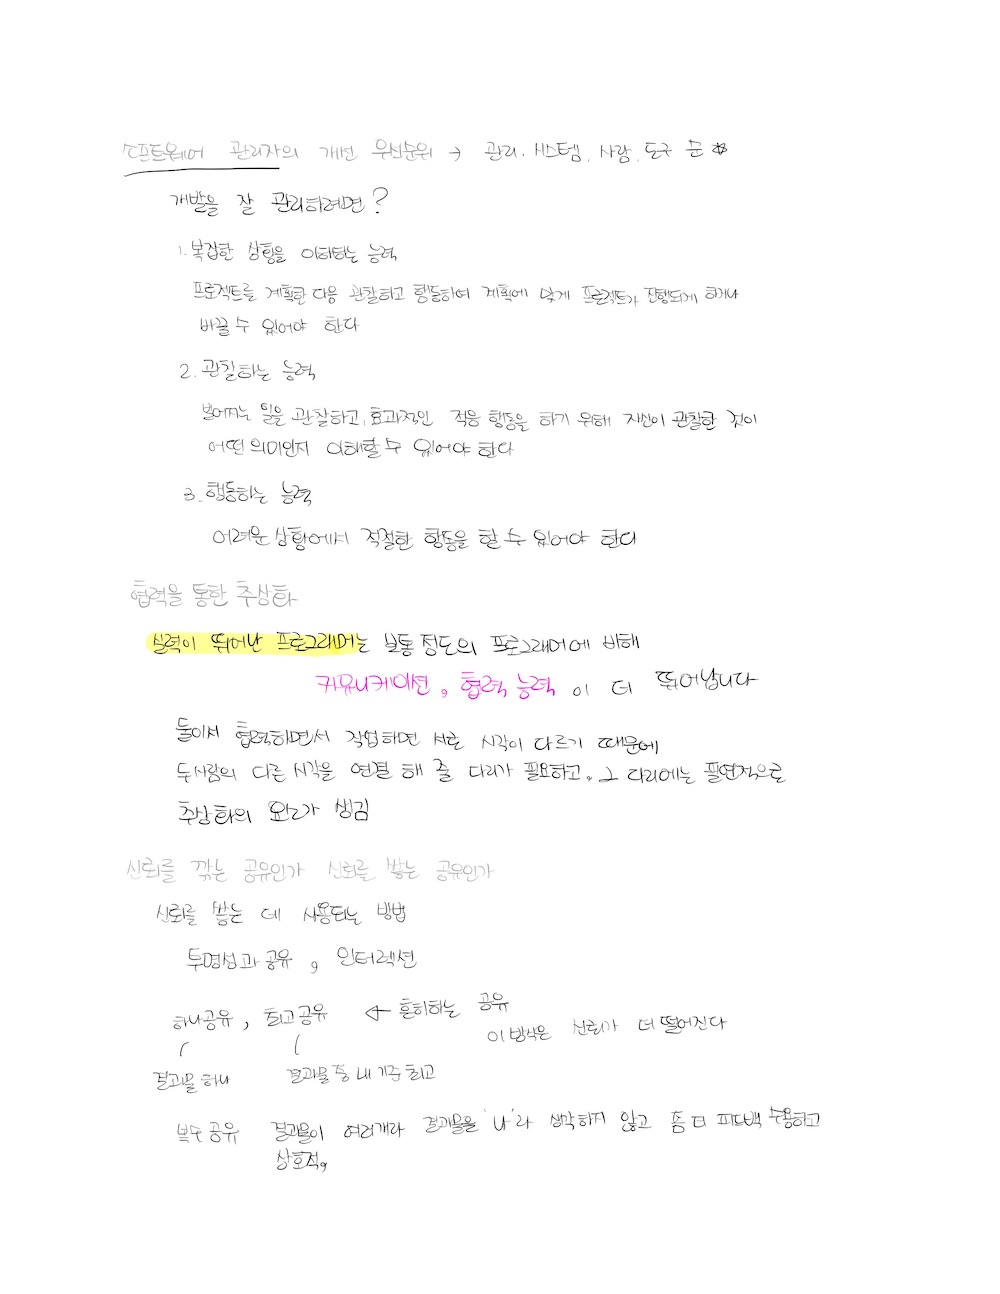 소프트웨어 관리자의 개선 우선순위 → 관리. 시스템. 사람. 도구 순
개발을 잘 관리하려면?
1. 복잡한 상황을 이해하는 능력
프로젝트를 계획한 다음 관찰하고 행동하여 계획에 맞게 프로젝트가 진행되게 하거나
바꿀 수 있어야 한다
2. 관찰하는 능력
벌어지는 일을 관찰하고, 효과적인 적응 행동을 하기 위해 자신이 관찰한 것이
어떤 의미인지 이해할 수 있어야 한다
3. 행동하는 능력
어려운 상황에서 적절한 행동을 할 수 있어야 한다
협력을 통한 추상화
실력이 뛰어난 프로그래머는 보통 정도의 프로그래머에 비해
커뮤니케이션, 협력 능력 이 더 뛰어납니다
둘이서 협력하면서 작업하면 서로 시각이 다르기 때문에
두사람의 다른 시각을 연결 해 줄 다리가 필요하고, 그 다리에는 필연적으로
추상화의 요소가 생김
신뢰를 깎는 공유인가 신뢰를 쌓는 공유인가
신뢰를 쌓는 데 사용되는 방법
투명성과 공유, 인터렉션
하나공유, 최고공유 ← 흔히하는 공유
이 방식은 신뢰가 더 떨어진다
결과물 하나 결과물 중 내 기준 최고
복수 공유 결과물이 여러개라 결과물을 '나'라 생각하지 않고 좀 더 피드백 수용하고
상호적,